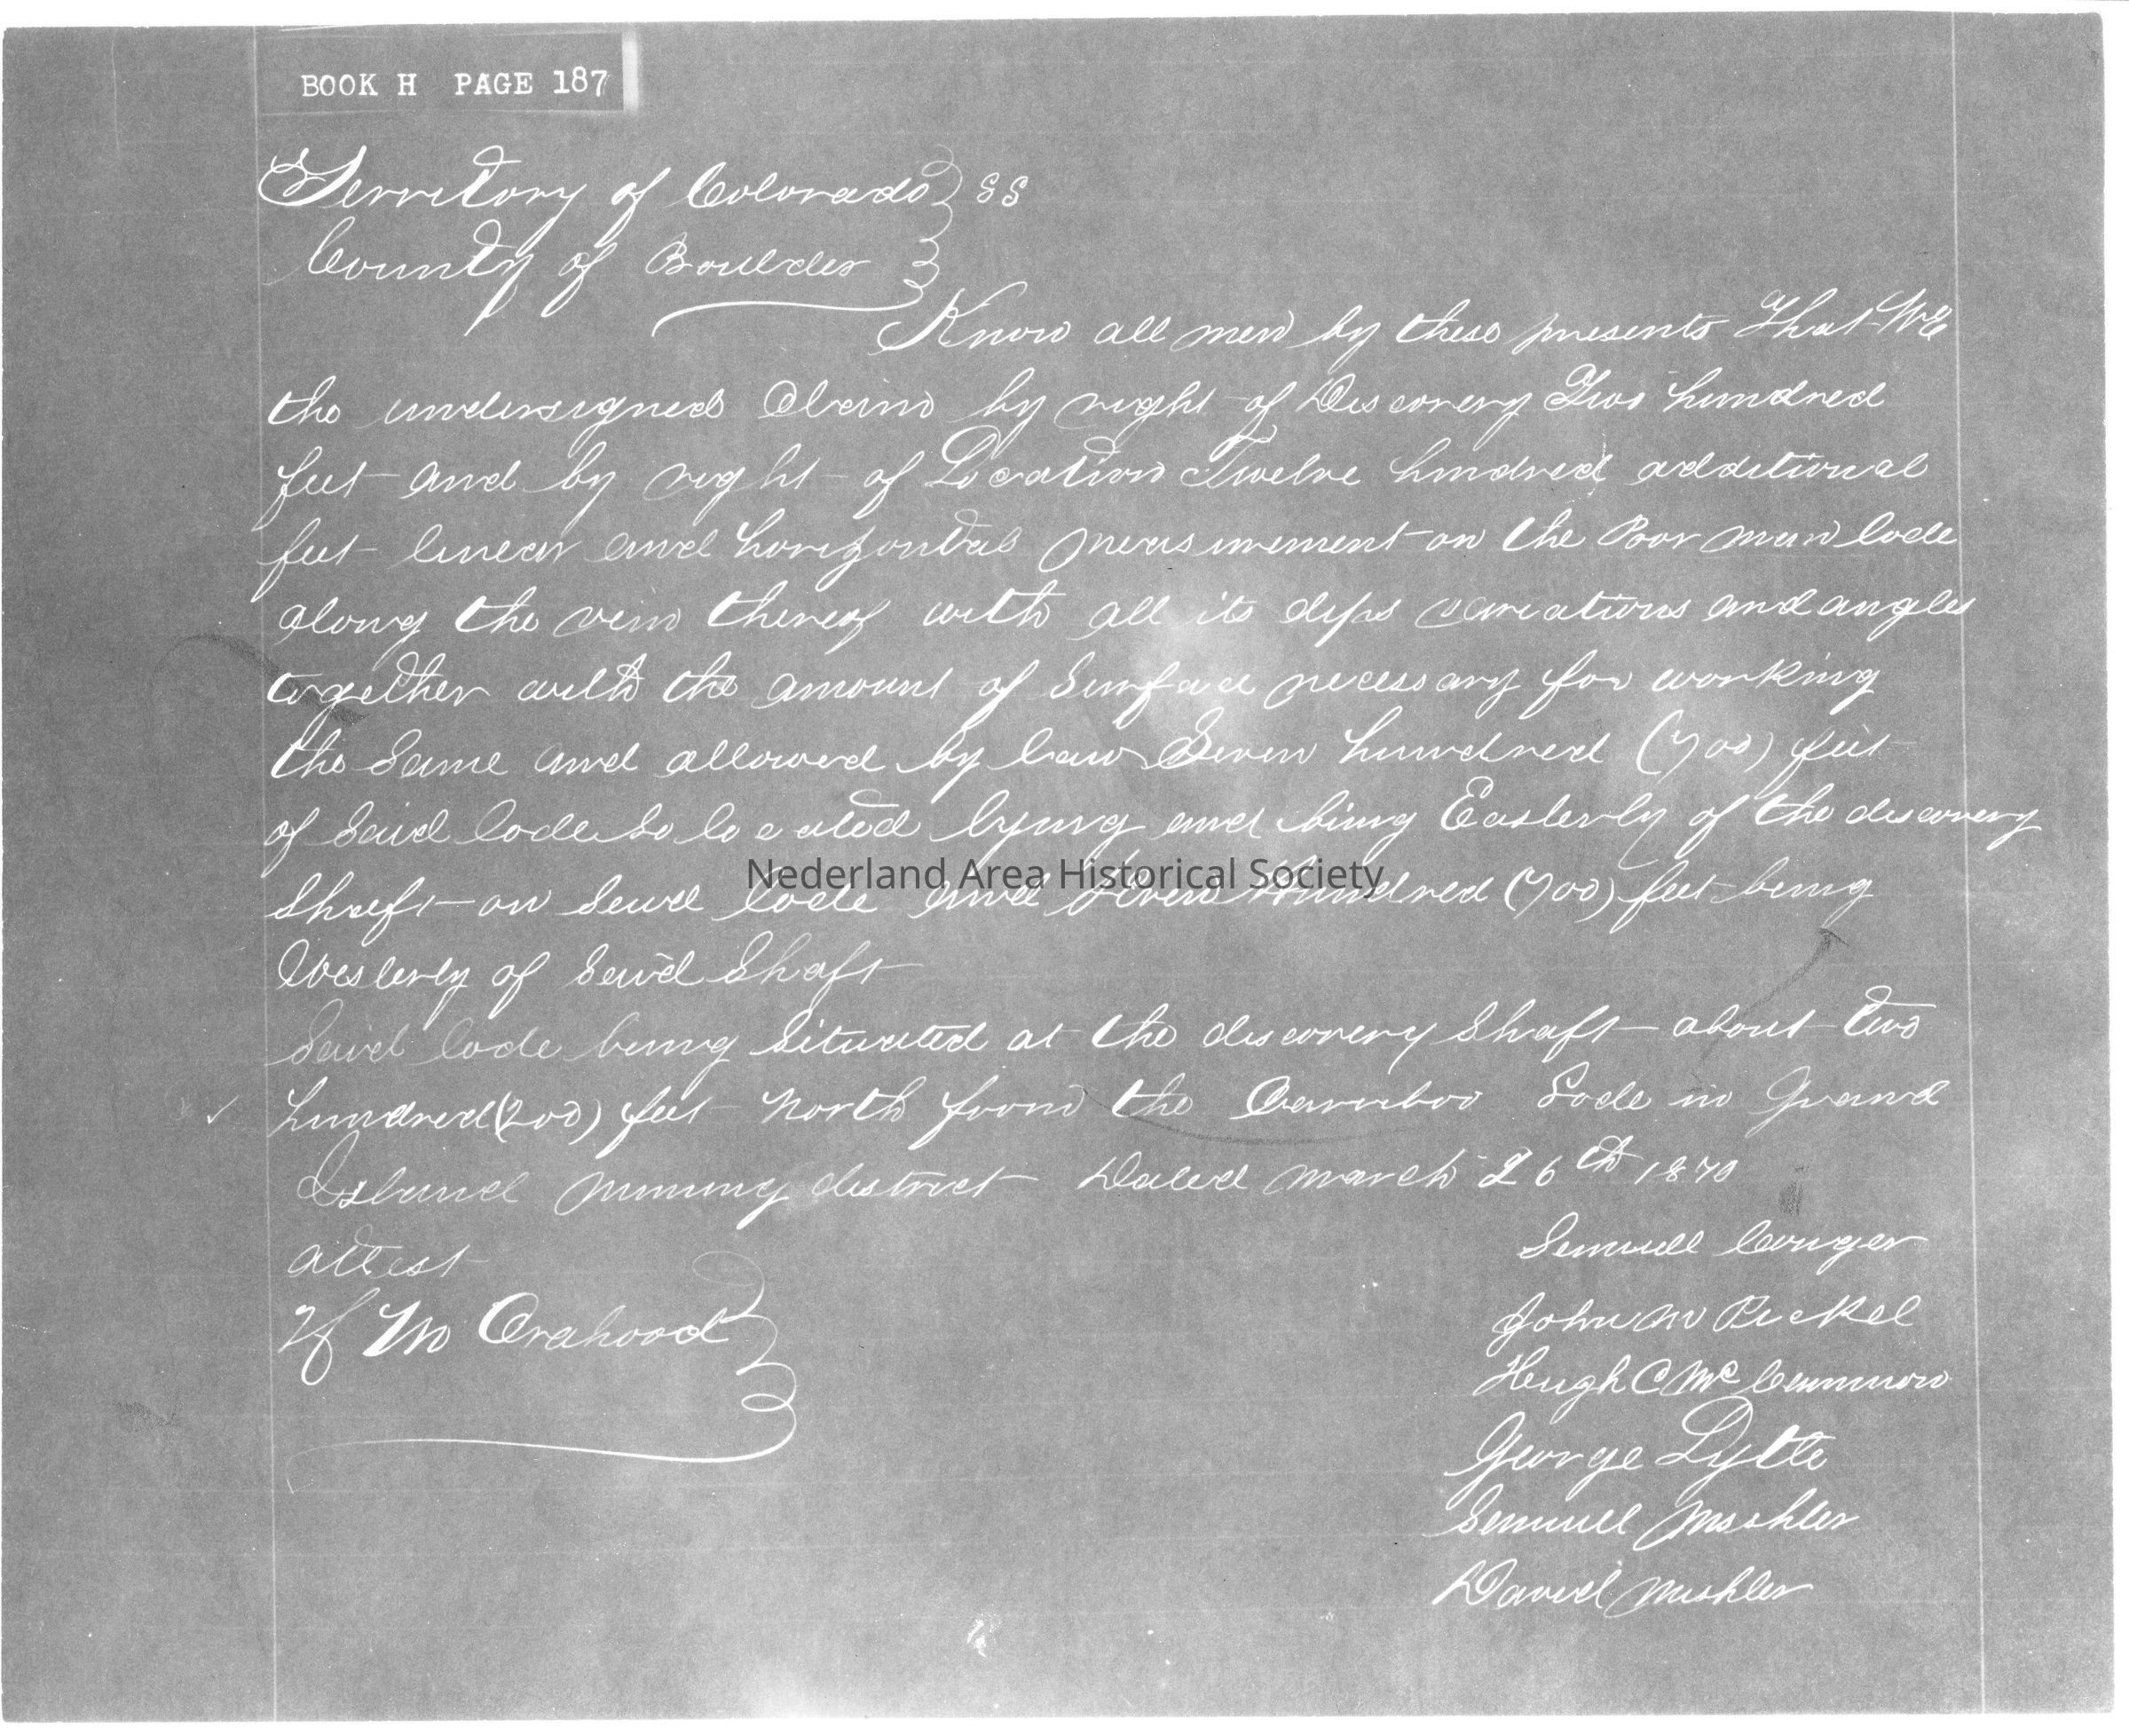 BOOK H PAGE 187
Territory of Colorado } SS
County of Boulder }
Know all men by these presents That We
the undersigned Claim by right of Discovery Two hundred
feet and by right of Location Twelve hundred additional
feet linear and horizontal measurement on the Poor man lode
along the vein thereof with all its dips variations and angles
together with the amount of Surface necessary for working
the Same and allowed by law Seven hundred (700) feet
of Said lode So located lying and being Easterly of the discovery
Shaft on Said lode and Seven Hundred (700) feet being
Westerly of Said Shaft
Said lode being Situated at the discovery Shaft about two
hundred (200) feet North from the Carriboo Lode in Grand
Island Mining district Dated March 26th 1870
attest
H M Orahood
Samuell Conger
John M Pickel
Hugh C McCammon
George Lytle
Samuell Mishler
David Mishler
Nederland Area Historical Society